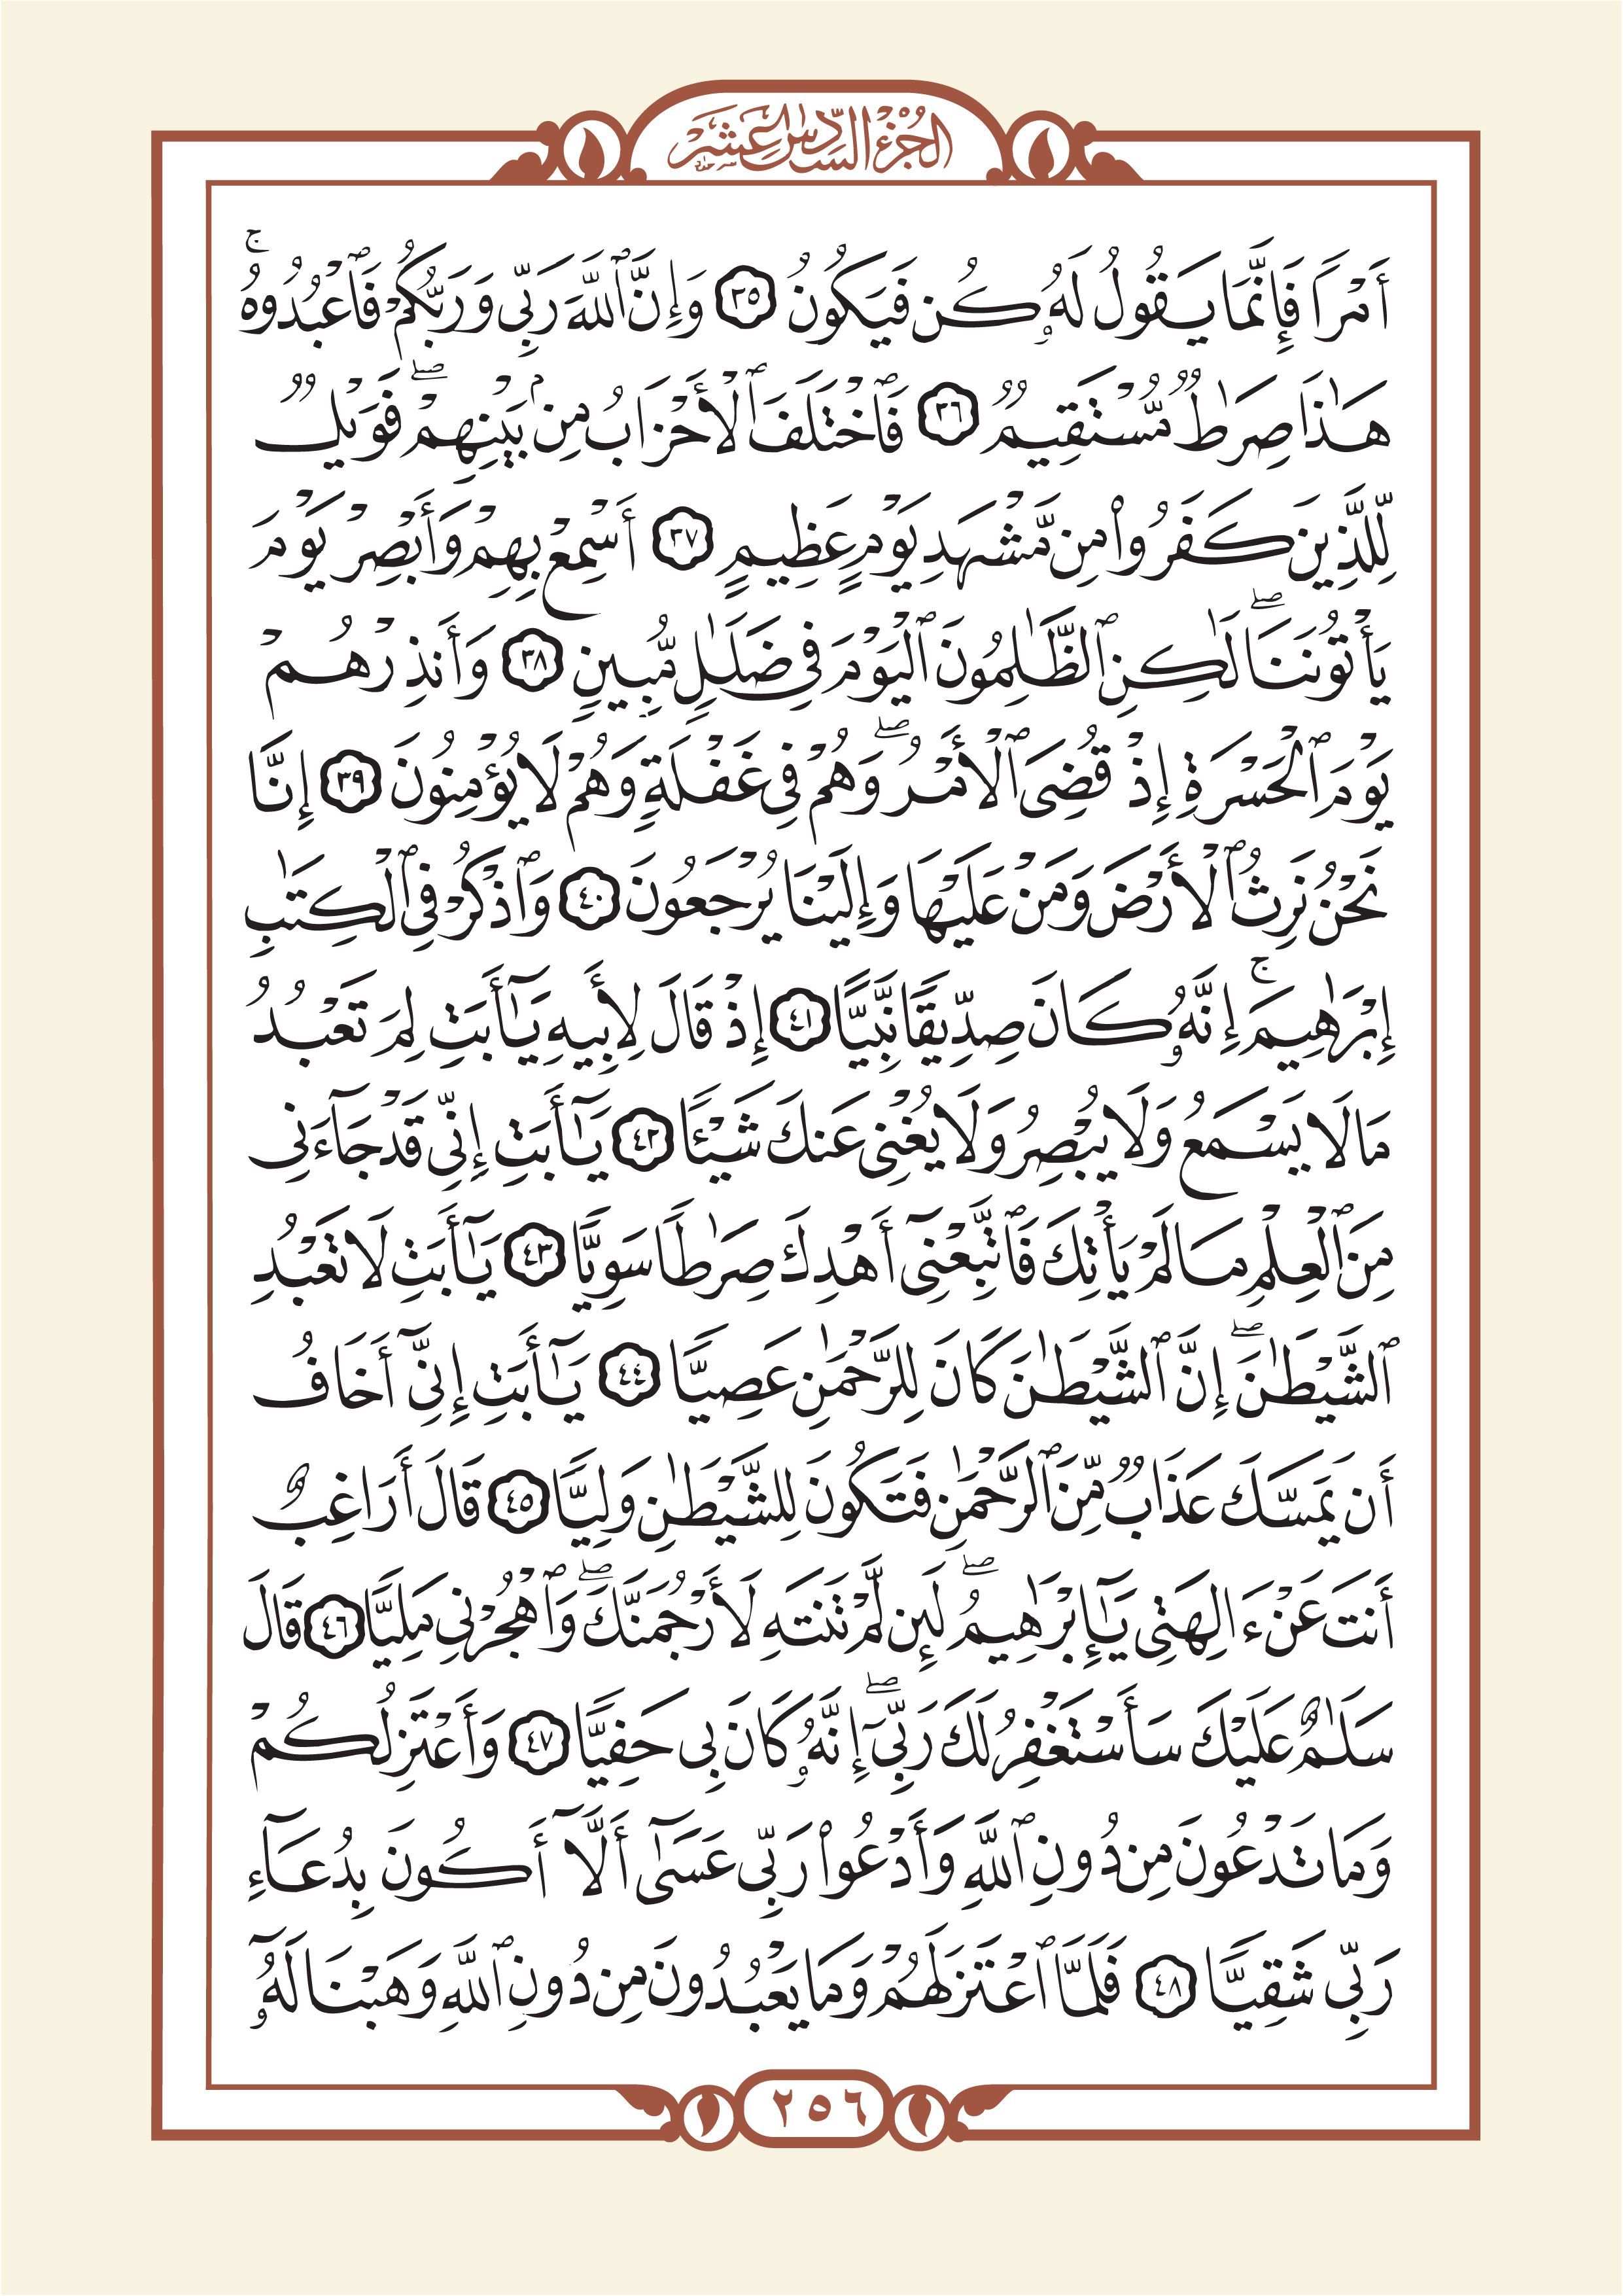 الجزء السادس عشر
أَمْرًا فَإِنَّمَا يَقُولُ لَهُۥ كُن فَيَكُونُ ٣٥ وَإِنَّ ٱللَّهَ رَبِّى وَرَبُّكُمْ فَٱعْبُدُوهُ ۚ
هَـٰذَا صِرَٰطٌ مُّسْتَقِيمٌ ٣٦ فَٱخْتَلَفَ ٱلْأَحْزَابُ مِنۢ بَيْنِهِمْ ۖ فَوَيْلٌ
لِّلَّذِينَ كَفَرُوا۟ مِن مَّشْهَدِ يَوْمٍ عَظِيمٍ ٣٧ أَسْمِعْ بِهِمْ وَأَبْصِرْ يَوْمَ
يَأْتُونَنَا ۖ لَـٰكِنِ ٱلظَّـٰلِمُونَ ٱلْيَوْمَ فِى ضَلَـٰلٍ مُّبِينٍ ٣٨ وَأَنذِرْهُمْ
يَوْمَ ٱلْحَسْرَةِ إِذْ قُضِىَ ٱلْأَمْرُ ۖ وَهُمْ فِى غَفْلَةٍ وَهُمْ لَا يُؤْمِنُونَ ٣٩ إِنَّا
نَحْنُ نَرِثُ ٱلْأَرْضَ وَمَنْ عَلَيْهَا وَإِلَيْنَا يُرْجَعُونَ ٤٠ وَٱذْكُرْ فِى ٱلْكِتَـٰبِ
إِبْرَٰهِيمَ ۚ إِنَّهُۥ كَانَ صِدِّيقًا نَّبِيًّا ٤١ إِذْ قَالَ لِأَبِيهِ يَـٰٓأَبَتِ لِمَ تَعْبُدُ
مَا لَا يَسْمَعُ وَلَا يُبْصِرُ وَلَا يُغْنِى عَنكَ شَيْـًٔا ٤٢ يَـٰٓأَبَتِ إِنِّى قَدْ جَآءَنِى
مِنَ ٱلْعِلْمِ مَا لَمْ يَأْتِكَ فَٱتَّبِعْنِىٓ أَهْدِكَ صِرَٰطًا سَوِيًّا ٤٣ يَـٰٓأَبَتِ لَا تَعْبُدِ
ٱلشَّيْطَـٰنَ ۖ إِنَّ ٱلشَّيْطَـٰنَ كَانَ لِلرَّحْمَـٰنِ عَصِيًّا ٤٤ يَـٰٓأَبَتِ إِنِّىٓ أَخَافُ
أَن يَمَسَّكَ عَذَابٌ مِّنَ ٱلرَّحْمَـٰنِ فَتَكُونَ لِلشَّيْطَـٰنِ وَلِيًّا ٤٥ قَالَ أَرَاغِبٌ
أَنتَ عَنْ ءَالِهَتِى يَـٰٓإِبْرَٰهِيمُ ۖ لَئِن لَّمْ تَنتَهِ لَأَرْجُمَنَّكَ ۖ وَٱهْجُرْنِى مَلِيًّا ٤٦ قَالَ
سَلَـٰمٌ عَلَيْكَ سَأَسْتَغْفِرُ لَكَ رَبِّىٓ ۖ إِنَّهُۥ كَانَ بِى حَفِيًّا ٤٧ وَأَعْتَزِلُكُمْ
وَمَا تَدْعُونَ مِن دُونِ ٱللَّهِ وَأَدْعُوا۟ رَبِّى عَسَىٰٓ أَلَّآ أَكُونَ بِدُعَآءِ
رَبِّى شَقِيًّا ٤٨ فَلَمَّا ٱعْتَزَلَهُمْ وَمَا يَعْبُدُونَ مِن دُونِ ٱللَّهِ وَهَبْنَا لَهُۥٓ
٢٥٦